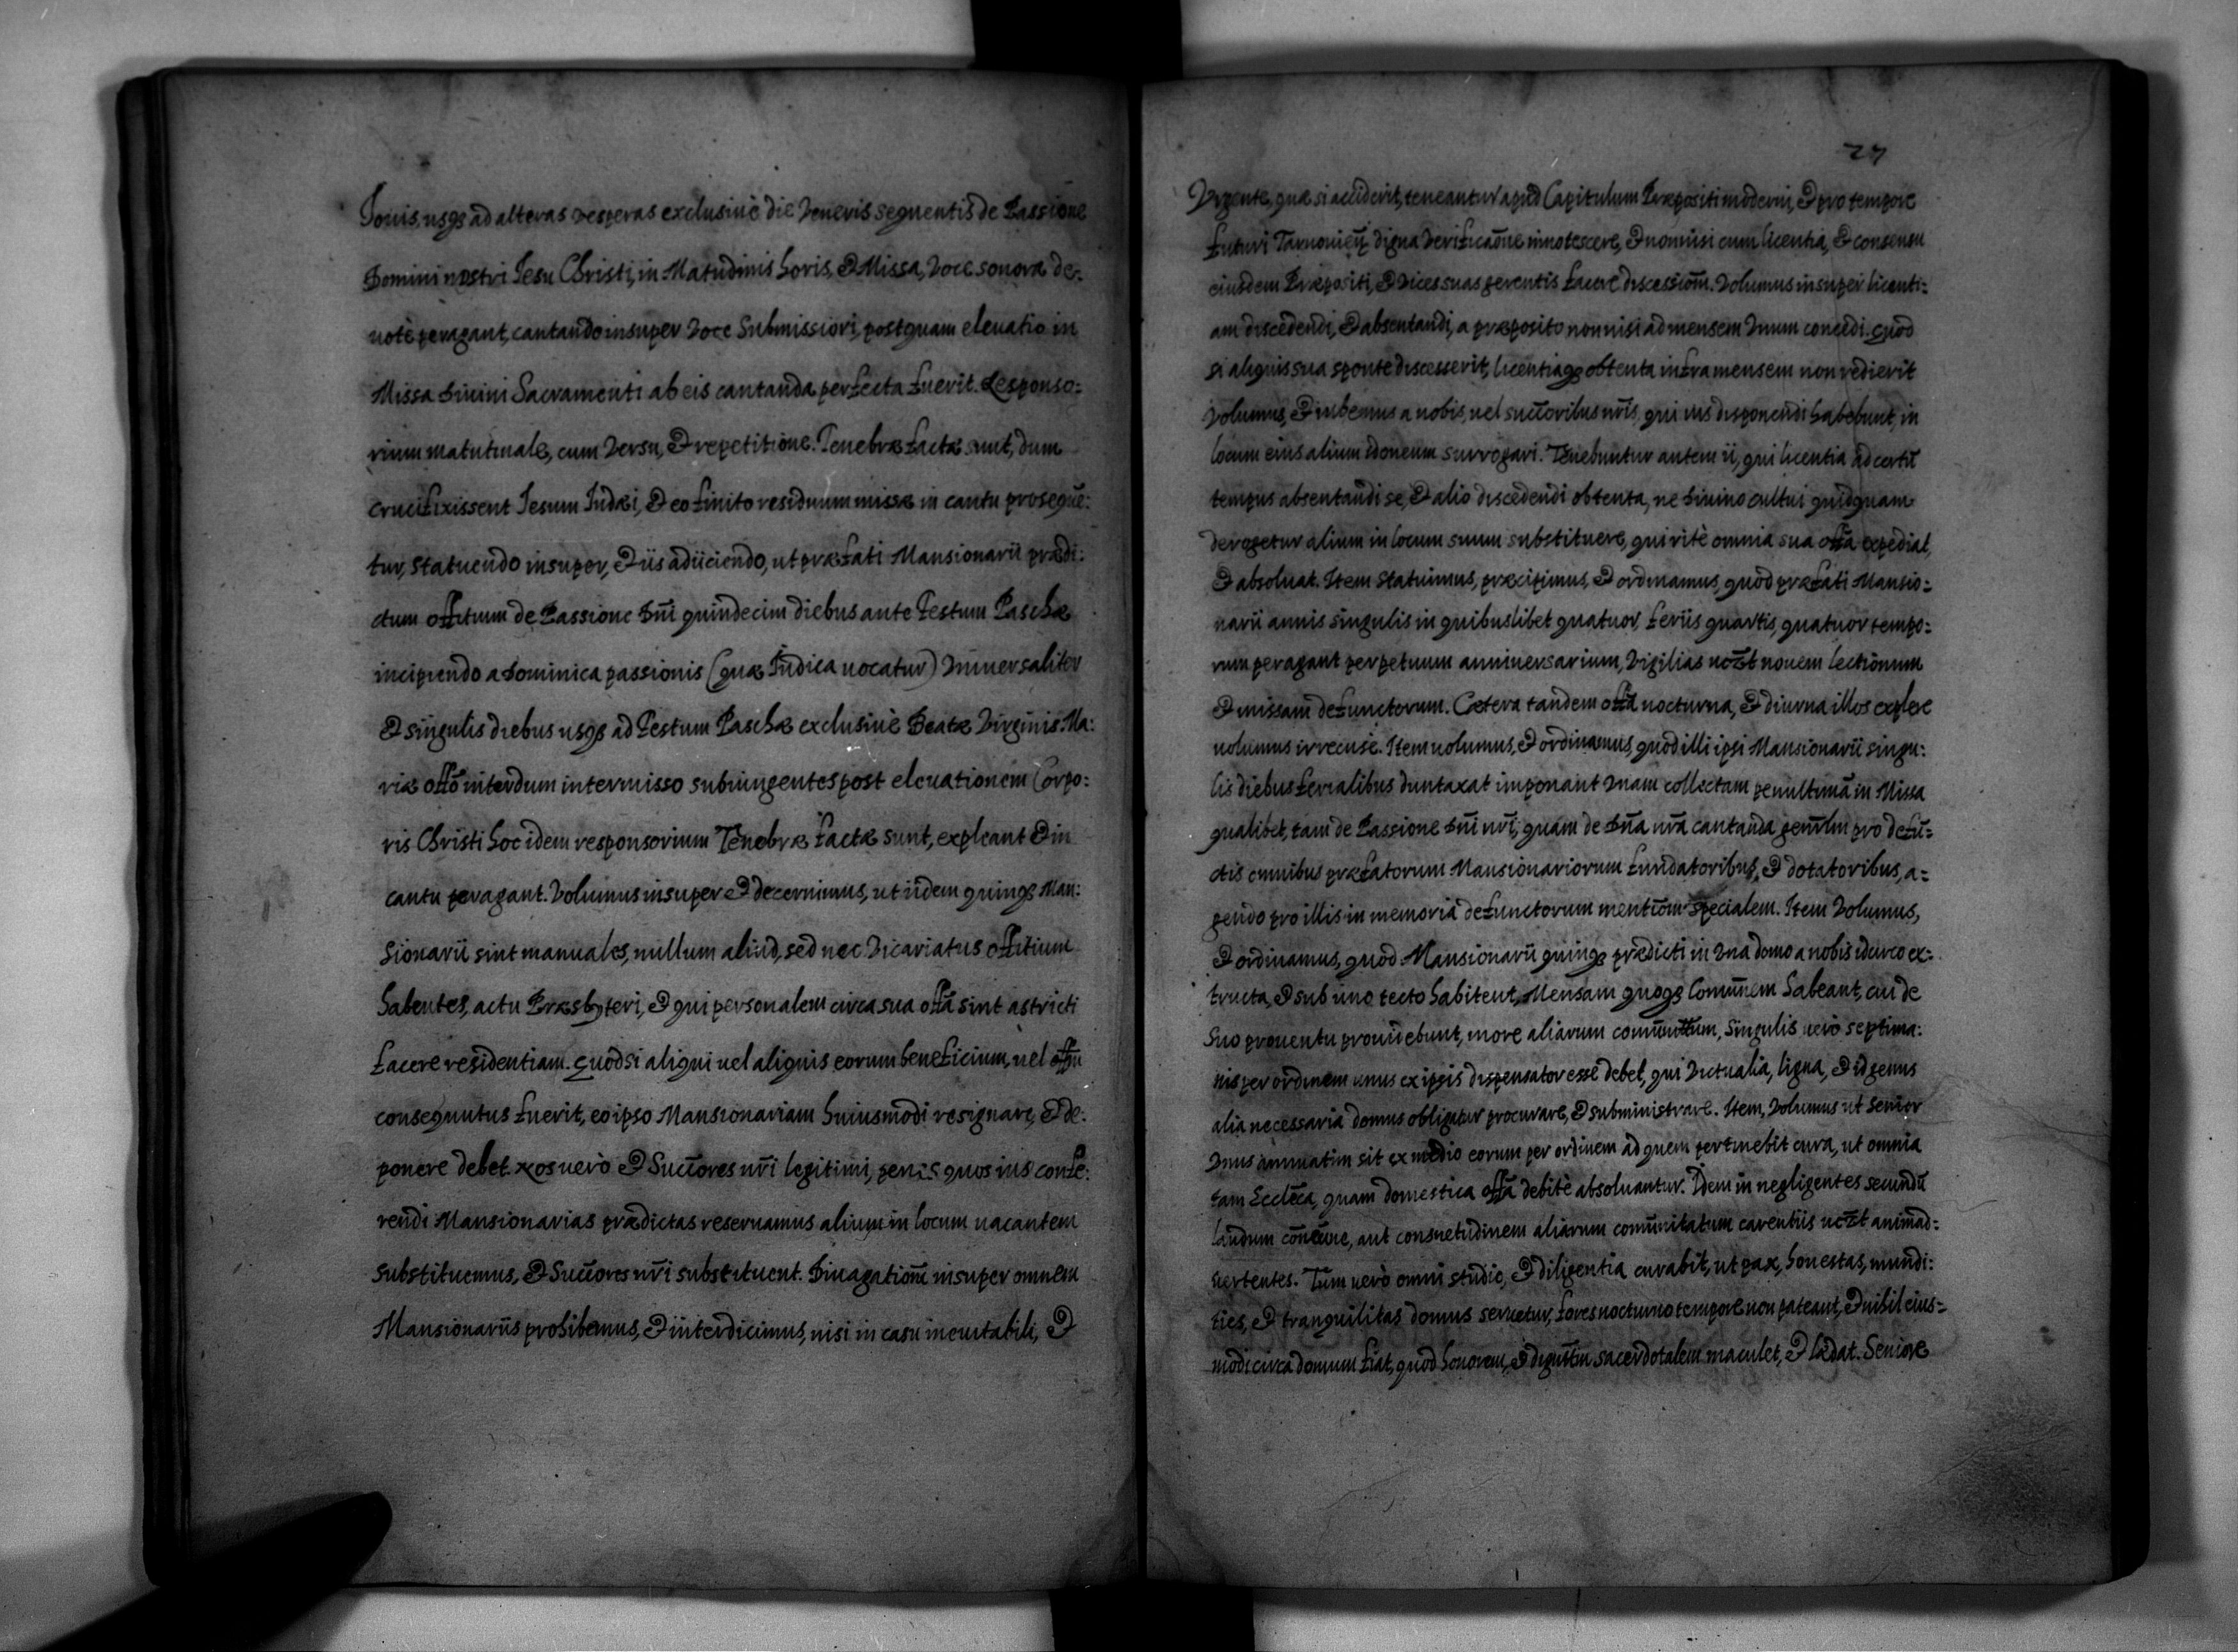 Iouis, usqȝ ad alteras vesperas exclusiuè die Veneris sequentis de Passione
Domini nostri Iesu Christi, in Matudinis horis, & Missa, voce sonora de-
uotè peragant, cantando insuper voce submissiori, postquam eleuatio in
Missa Diuini Sacramenti ab eis cantanda perfecta fuerit. Responso:
rium matutinale, cum versu, & repetitione. Tenebræ factæ sunt, dum
crucifixissent Iesum Iudæi, & eo finito residuum missæ in cantu proseguē:
tur, statuendo insuper, & iis adiiciendo, ut præfati Mansionarii prædi:
ctum offitium de Passione Dnī quindecim diebus ante Festum Paschæ
incipiendo a Dominica passionis (quæ Iudica uocatur) Vniuersaliter
& singulis diebus usqȝ ad Festum Paschæ exclusiuè Beatæ Virginis Ma:
riæ offō interdum intermisso subiungentes post eleuationem Corpo:
ris Christi hoc idem responsorium Tenebræ factæ sunt, expleant & in
cantu peragant. Volumus insuper & decernimus, ut iidem quinqȝ Man:
sionarii sint manuales, nullum aliud, sed nec vicariatus offitium
habentes, actu Præsbyteri, & qui personalem circa sua offā sint astricti
facere residentiam. Quodsi aliqui uel aliquis eorum beneficium, uel offm
consequutus fuerit, eo ipso Mansionariam huiusmodi resignare, & de:
ponere debet. Nos uerò & Succōres nrī legitimi, penes quos ius confe:
rendi Mansionarias prædictas reseruamus alium in locum uacantem
substituemus, & Succōres nrī substituent. Diuagationē insuper omnem
Mansionariis prohibemus, & interdicimus, nisi in casu ineuitabili, &
27
Vrgente, quæ si acciderit, teneantur apud Capitulum Præpositi moderni, & pro tempore
futuri Tarnouieñ digna verificatōne innotescere, & non nisi cum licentia, & consensu
eiusdem Præpositi, & vices suas gerentis facere discessiom̄. Volumus insuper licenti:
am discedendi, & absentandi, a præposito non nisi ad mensem vnum concedi. Quod
si aliquis sua sponte discesserit, licentiaqȝ obtenta infra mensem non redierit
volumus, & iubemus a nobis, uel succōribus nrīs, qui ius disponendi habebunt, in
locum eius alium idoneum surrogari. Tenebuntur autem ii, qui licentia ad certū
tempus absentandi se, & alio discedendi obtenta, ne Diuino cultui quidquam
derogetur alium in locum suum substituere, qui ritè omnia sua offā expediat,
& absoluat. Item statuimus, præcipimus, & ordinamus, quod præfati Mansio:
narii annis singulis in quibuslibet quatuor feriis quartis, quatuor tempo:
rum peragant perpetuum anniuersarium, vigilias uczt nouem lectionum
& missam defunctorum. Cætera tandem offā nocturna, & diurna illos explere
uolumus irrecusè. Item uolumus, & ordinamus, quod illi ipsi Mansionarii singu:
lis diebus ferialibus duntaxat imponant vnam collectam penultimā in Missa
qualibet, tam de Passione Dnī nrī, quam de Dnā nrā cantanda genrlm pro defū:
ctis omnibus præfatorum Mansionariorum fundatoribus, & dotatoribus, a:
gendo pro illis in memoria defunctorum mentiom̄ specialem. Item volumus,
& ordinamus, quod Mansionarii quinqȝ prædicti in vna domo a nobis idcirco ex:
tructa, & sub uno tecto habitent, Mensam quoqȝ Comūnem habeant, cui de
suo prouentu prouidebunt, more aliarum comūnittum, singulis uerò septima:
nis per ordinem unus ex ipsis dispensator esse debet, qui victualia, ligna, & id genus
alia necessaria domus obligatur procurare, & subministrare. Item, volumus ut senior
vnus annuatim sit ex medio eorum per ordinem ad quem pertinebit cura, ut omnia
tam Ecclēca, quam domestica offā debitè absoluantur. Idem in negligentes secundū
laudum aut consuetudinem aliarum comūnitatum carentiis uczt animad:
uertentes. Tum uerò omni studio, & diligentia curabit, ut pax, honestas, mundi:
ties, & tranquilitas domus seruetur, fores nocturno tempore non pateant, & nihil eius:
modi circa domum fiat, quod honorem, & dignittm sacerdotalem maculet, & lædat. Seniore